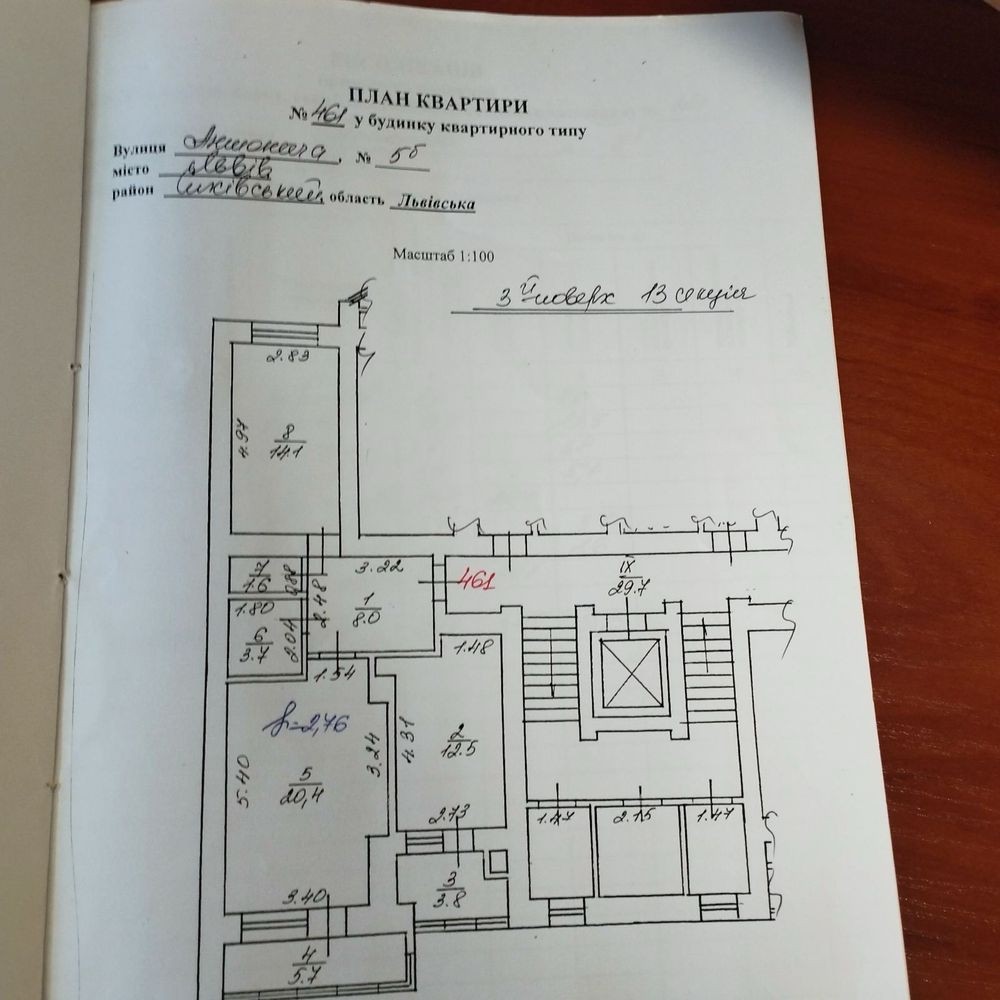 ПЛАН КВАРТИРИ
№ 461 у будинку квартирного типу
Вулиця Антонича, № 5б
місто Львів
район Сихівський область Львівська
Масштаб 1:100
3й поверх 13 секція
2.83
4.97
8
14.1
7
1.6
0.88
3.22
461
IX
29.7
2.48
1
8.0
1.80
6
3.7
2.04
1.54
1.48
h=2,76
5.40
5
20,4
3.24
4.31
2
12.5
2.73
1.47
2.15
1.47
3.40
3
3.8
4
5.7